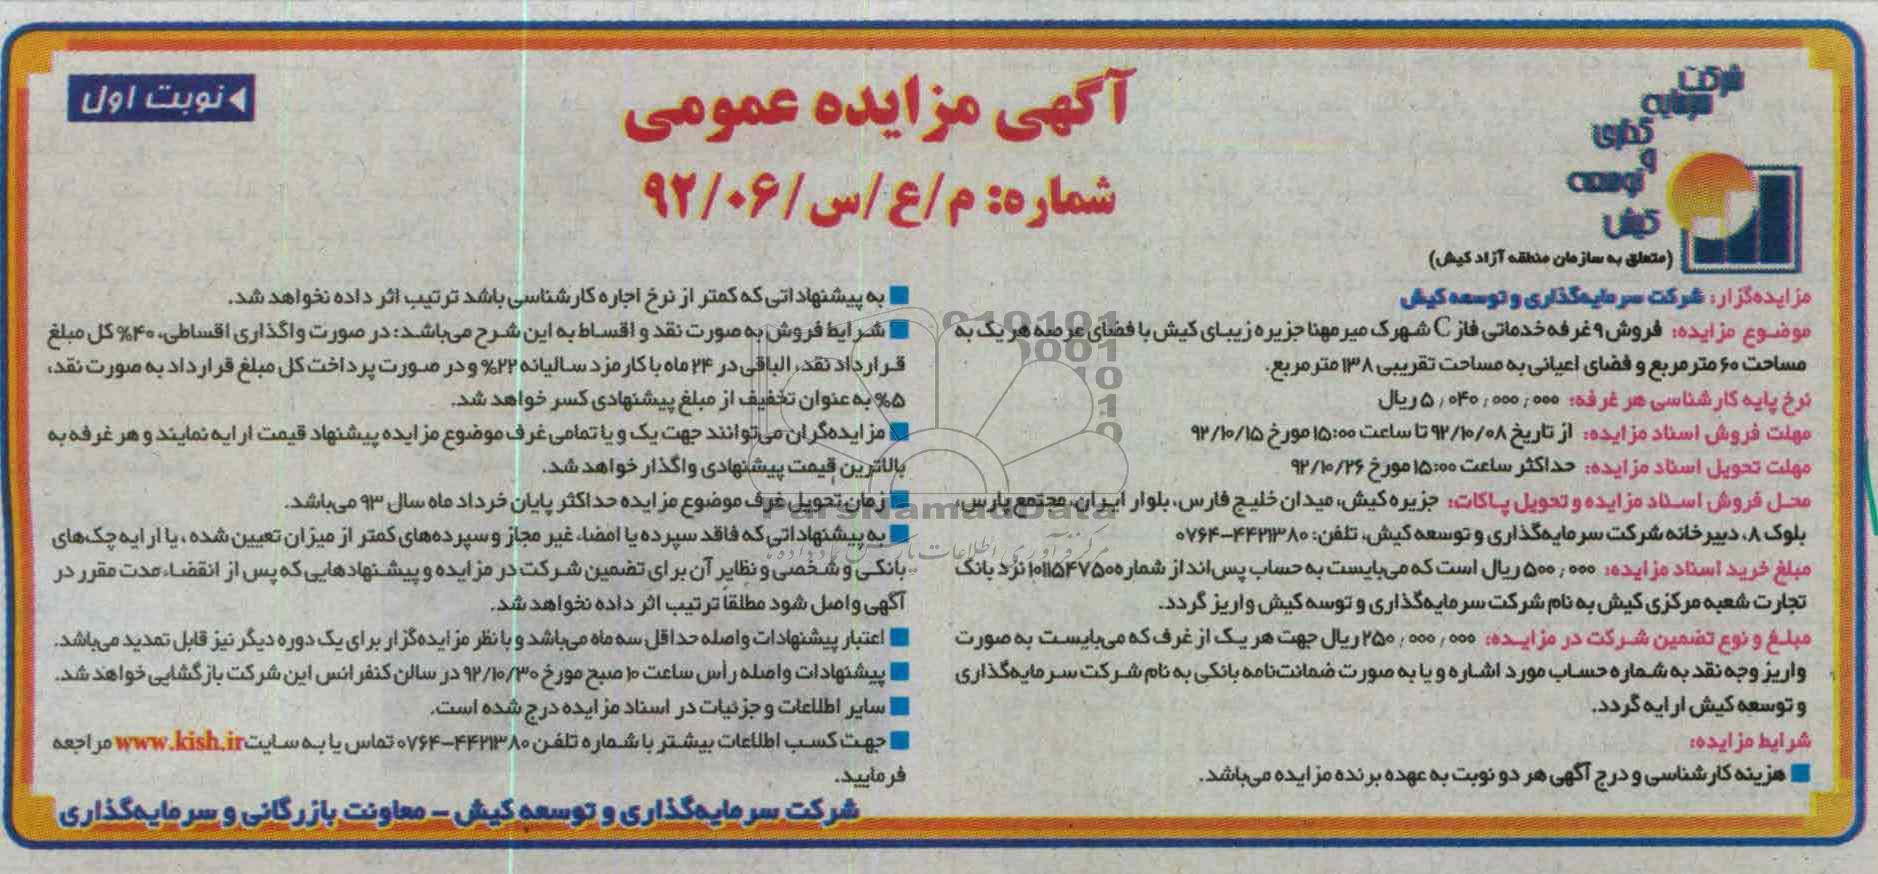 شرکت
سرمایه
گذاری
و
توسعه
کیش
(متعلق به سازمان منطقه آزاد کیش)
آگهی مزایده عمومی
شماره: م/ع/س/۹۲/۰۶
نوبت اول
مزایده‌گزار: شرکت سرمایه‌گذاری و توسعه کیش
موضوع مزایده: فروش ۹ غرفه خدماتی فاز C شهرک میرمهنا جزیره زیبای کیش با فضای عرصه هر یک به
مساحت ۶۰ مترمربع و فضای اعیانی به مساحت تقریبی ۱۳۸ مترمربع.
نرخ پایه کارشناسی هر غرفه: ۵,۰۴۰,۰۰۰,۰۰۰ ریال
مهلت فروش اسناد مزایده: از تاریخ ۹۲/۱۰/۰۸ تا ساعت ۱۵:۰۰ مورخ ۹۲/۱۰/۱۵
مهلت تحویل اسناد مزایده: حداکثر ساعت ۱۵:۰۰ مورخ ۹۲/۱۰/۲۶
محل فروش اسناد مزایده و تحویل پاکات: جزیره کیش، میدان خلیج فارس، بلوار ایران، مجتمع پارس،
بلوک ۸، دبیرخانه شرکت سرمایه‌گذاری و توسعه کیش، تلفن: ۴۴۲۱۳۸۰-۰۷۶۴
مبلغ خرید اسناد مزایده: ۵۰۰,۰۰۰ ریال است که می‌بایست به حساب پس‌انداز شماره ۱۰۱۱۵۴۷۵۰ نزد بانک
تجارت شعبه مرکزی کیش به نام شرکت سرمایه‌گذاری و توسه کیش واریز گردد.
مبلغ و نوع تضمین شرکت در مزایده: ۲۵۰,۰۰۰,۰۰۰ ریال جهت هر یک از غرف که می‌بایست به صورت
واریز وجه نقد به شماره حساب مورد اشاره و یا به صورت ضمانت‌نامه بانکی به نام شرکت سرمایه‌گذاری
و توسعه کیش ارایه گردد.
شرایط مزایده:
هزینه کارشناسی و درج آگهی هر دو نوبت به عهده برنده مزایده می‌باشد.
به پیشنهاداتی که کمتر از نرخ اجاره کارشناسی باشد ترتیب اثر داده نخواهد شد.
شرایط فروش به صورت نقد و اقساط به این شرح می‌باشد: در صورت واگذاری اقساطی، ۴۰% کل مبلغ
قرارداد نقد، الباقی در ۲۴ ماه با کارمزد سالیانه ۲۲% و در صورت پرداخت کل مبلغ قرارداد به صورت نقد،
۵% به عنوان تخفیف از مبلغ پیشنهادی کسر خواهد شد.
مزایده‌گران می‌توانند جهت یک و یا تمامی غرف موضوع مزایده پیشنهاد قیمت ارایه نمایند و هر غرفه به
بالاترین قیمت پیشنهادی واگذار خواهد شد.
زمان تحویل غرف موضوع مزایده حداکثر پایان خرداد ماه سال ۹۳ می‌باشد.
به پیشنهاداتی که فاقد سپرده یا امضاء غیر مجاز و سپرده‌های کمتر از میزان تعیین شده، یا ارایه چک‌های
بانکی و شخصی و نظایر آن برای تضمین شرکت در مزایده و پیشنهادهایی که پس از انقضاء مدت مقرر در
آگهی واصل شود مطلقا ترتیب اثر داده نخواهد شد.
اعتبار پیشنهادات واصله حداقل سه ماه می‌باشد و با نظر مزایده‌گزار برای یک دوره دیگر نیز قابل تمدید می‌باشد.
پیشنهادات واصله رأس ساعت ۱۰ صبح مورخ ۹۲/۱۰/۳۰ در سالن کنفرانس این شرکت بازگشایی خواهد شد.
سایر اطلاعات و جزئیات در اسناد مزایده درج شده است.
جهت کسب اطلاعات بیشتر با شماره تلفن ۴۴۲۱۳۸۰-۰۷۶۴ تماس یا به سایت www.kish.ir مراجعه
فرمایید.
شرکت سرمایه‌گذاری و توسعه کیش - معاونت بازرگانی و سرمایه‌گذاری
ParsNamadData